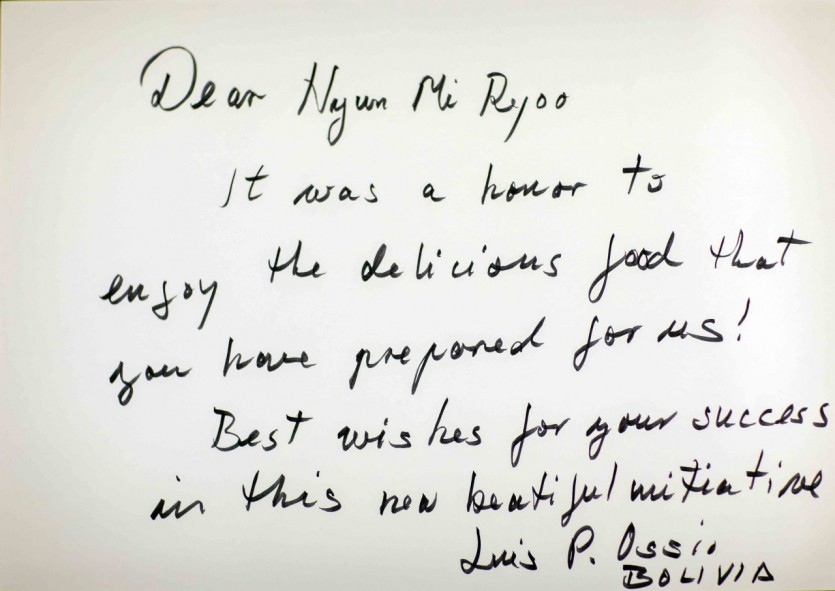 Dear Hyun Mi Ryoo
It was a honor to
enjoy the delicious food that
you have prepared for us!
Best wishes for your success
in this new beatiful initiative
Luis P. Ossio
BOLIVIA